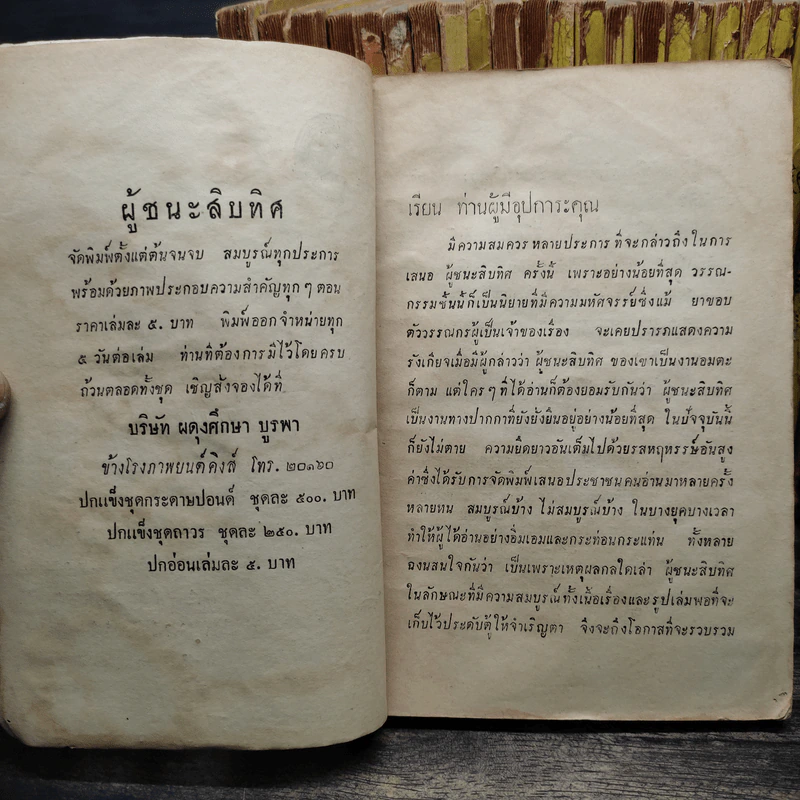 ผู้ชนะสิบทิศ
จัดพิมพ์ตั้งแต่ต้นจนจบ สมบูรณ์ทุกประการ
พร้อมด้วยภาพประกอบความสำคัญทุกๆ ตอน
ราคาเล่มละ ๕. บาท พิมพ์ออกจำหน่ายทุก
๕ วันต่อเล่ม ท่านที่ต้องการมีไว้โดยครบ
ถ้วนตลอดทั้งชุด เชิญสั่งจองได้ที่
บริษัท ผดุงศึกษา บูรพา
ข้างโรงภาพยนต์คิงส์ โทร. ๒๐๑๖๐
ปกแข็งชุดกระดาษปอนด์ ชุดละ ๕๐๐. บาท
ปกแข็งชุดถาวร ชุดละ ๒๕๐. บาท
ปกอ่อนเล่มละ ๕. บาท
เรียน ท่านผู้มีอุปการะคุณ
มีความสมควรหลายประการ ที่จะกล่าวถึงในการ
เสนอ ผู้ชนะสิบทิศ ครั้งนี้ เพราะอย่างน้อยที่สุด วรรณ-
กรรมชิ้นนี้ก็เป็นนิยายที่มีความมหัศจรรย์ซึ่งแม้ ยาขอบ
ตัววรรณกรผู้เป็นเจ้าของเรื่อง จะเคยปรารภแสดงความ
รังเกียจเมื่อมีผู้กล่าวว่า ผู้ชนะสิบทิศ ของเขาเป็นงานอมตะ
ก็ตาม แต่ใครๆ ที่ได้อ่านก็ต้องยอมรับกันว่า ผู้ชนะสิบทิศ
เป็นงานทางปากกาที่ยังยั่งยืนอยู่อย่างน้อยที่สุด ในปัจจุบันนี้
ก็ยังไม่ตาย ความยืดยาวอันเต็มไปด้วยรสหฤหรรษ์อันสูง
ค่าซึ่งได้รับการจัดพิมพ์เสนอประชาชนคนอ่านมาหลายครั้ง
หลายหน สมบูรณ์บ้าง ไม่สมบูรณ์บ้าง ในบางยุคบางเวลา
ทำให้ผู้ได้อ่านอย่างอิ่มเอมและกระท่อนกระแท่น ทั้งหลาย
ฉงนสนใจกันว่า เป็นเพราะเหตุผลกลใดเล่า ผู้ชนะสิบทิศ
ในลักษณะที่มีความสมบูรณ์ทั้งเนื้อเรื่องและรูปเล่มพอที่จะ
เก็บไว้ประดับตู้ให้จำเริญตา จึงจะถึงโอกาสที่จะรวบรวม